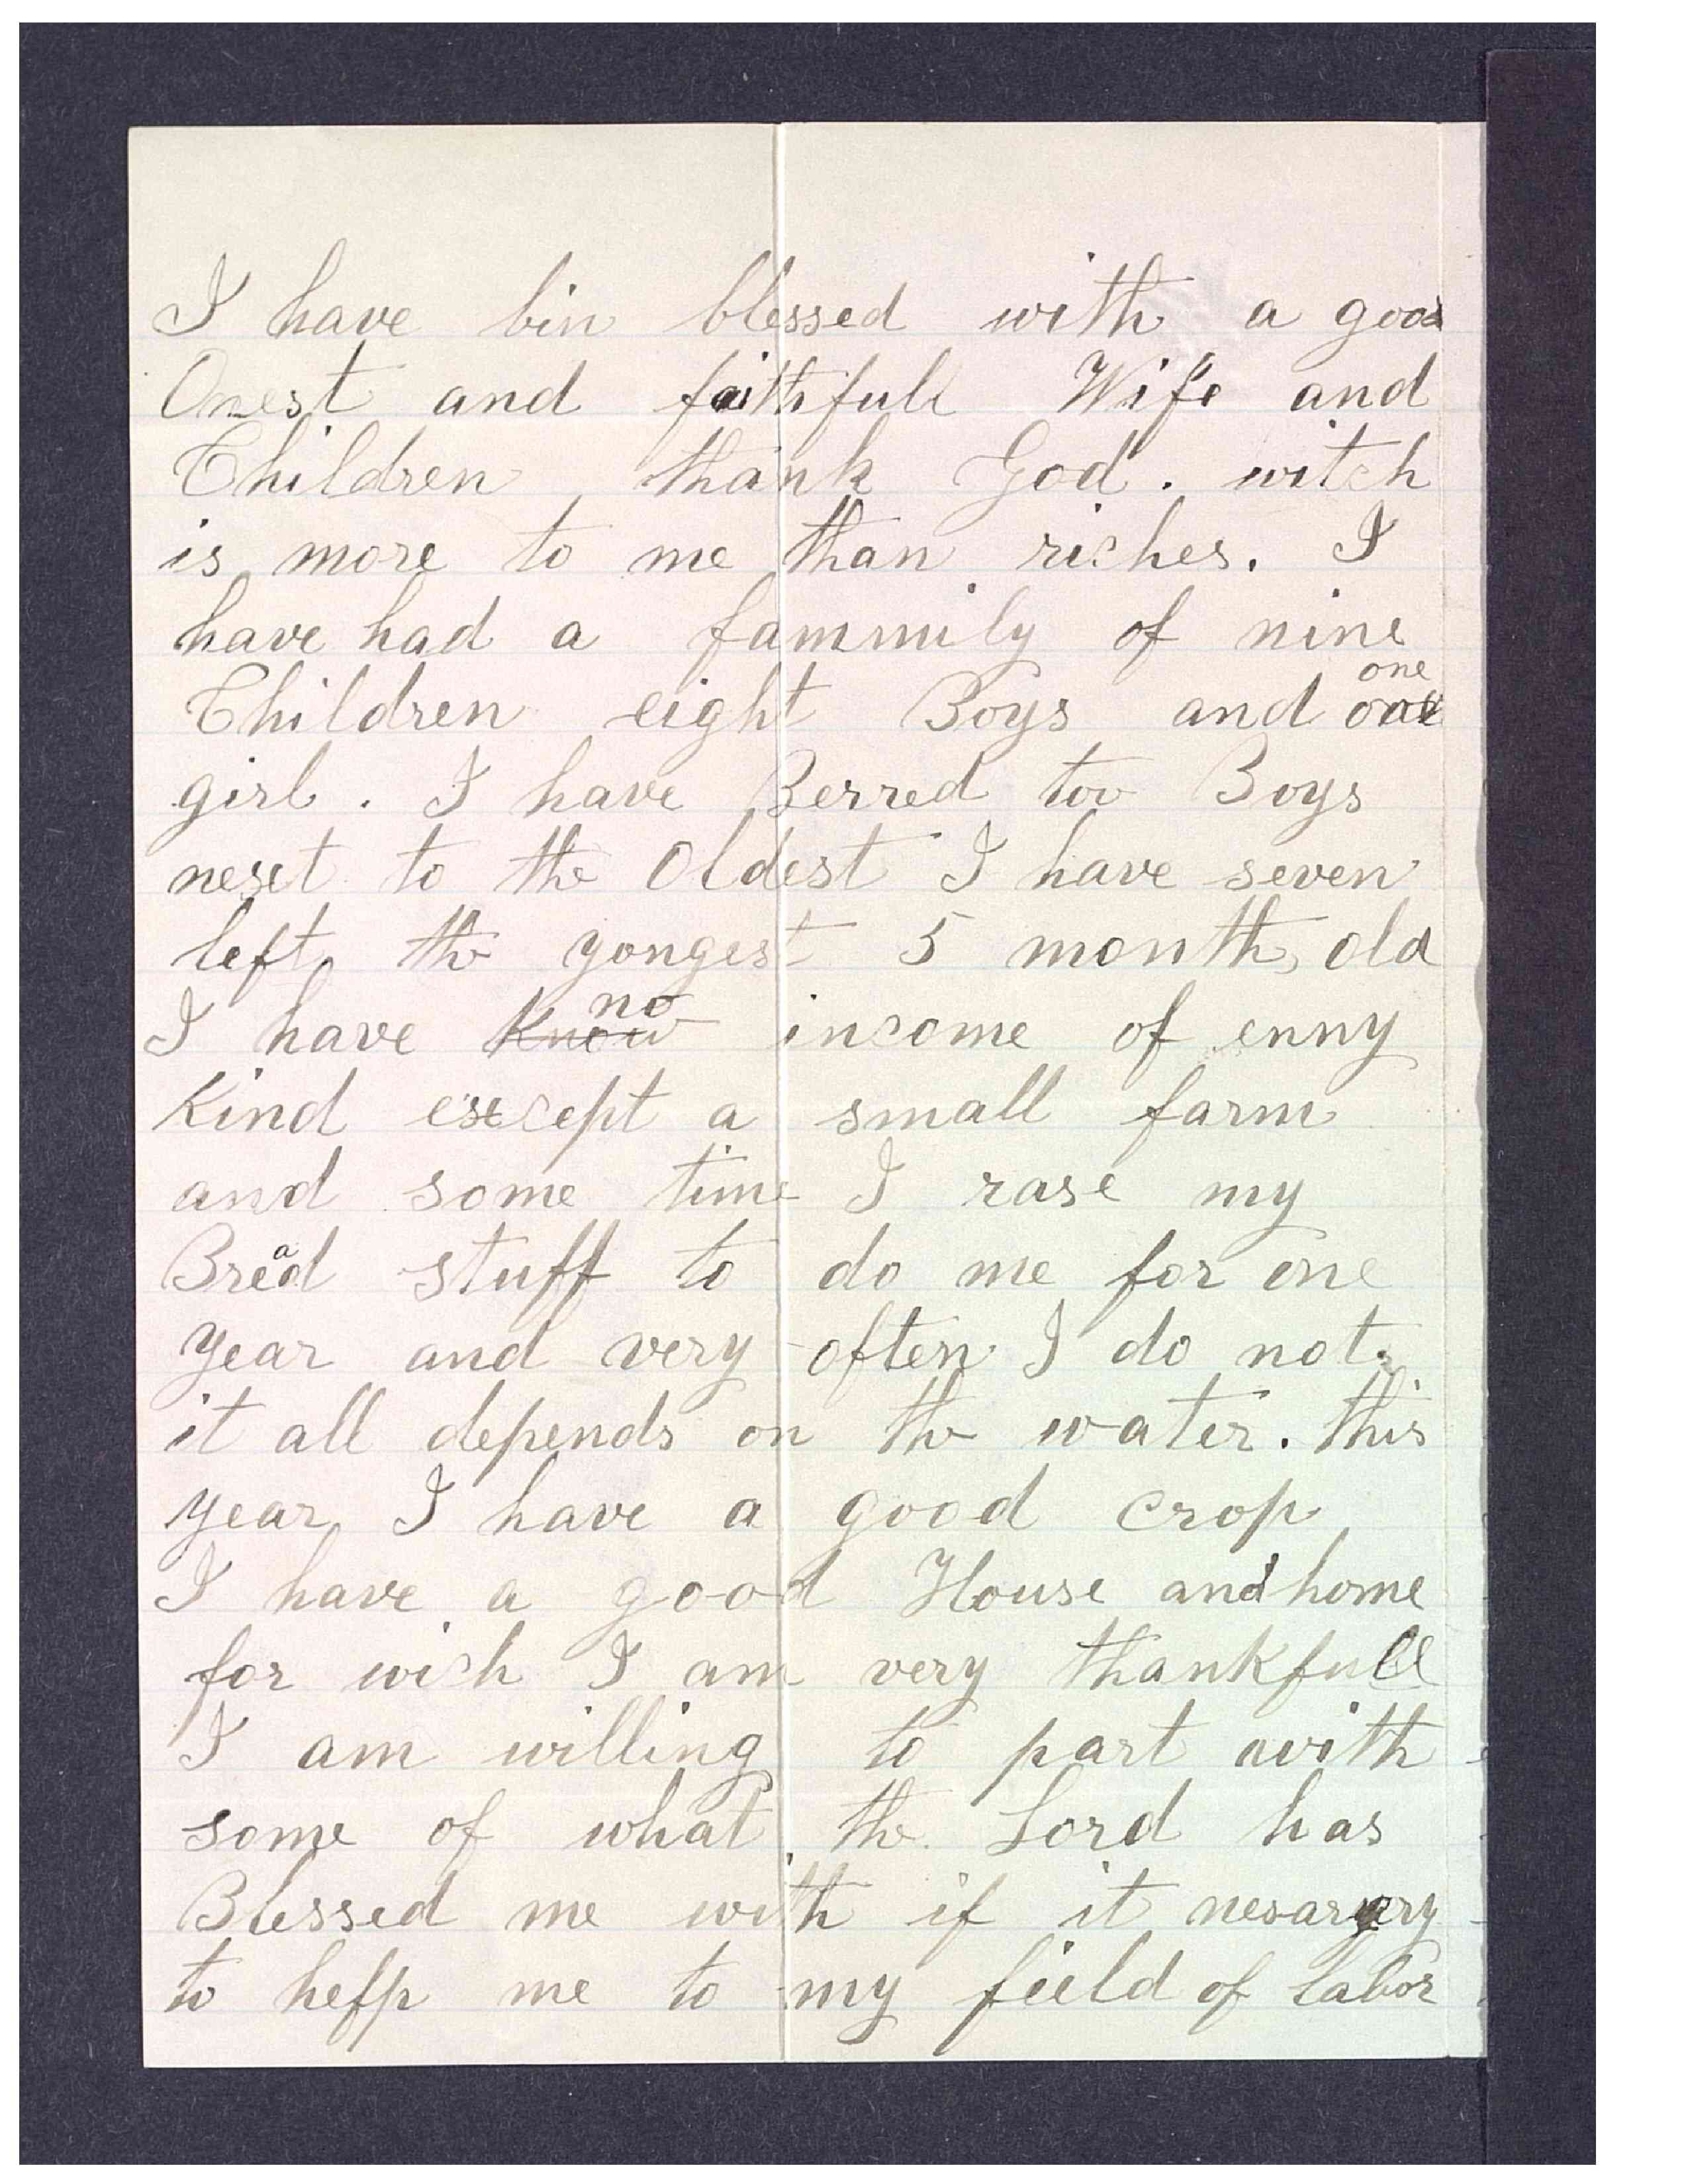 I have bin blessed with a good
Onest and faithfull Wife and
Children thank God. witch
is more to me than riches. I
have had a fammily of nine
Children eight Boys and one
girl. I have Berred too Boys
next to the Oldest I have seven
left the yongest 5 months old
I have know no income of enny
Kind except a small farm
and some time I rase my
Bread stuff to do me for one
year and very often I do not.
it all depends on the water. this
year I have a good crop
I have a good House and home
for wich I am very thankfull
I am willing to part with
some of what the Lord has
Blessed me with if it
to help me to my field of labor